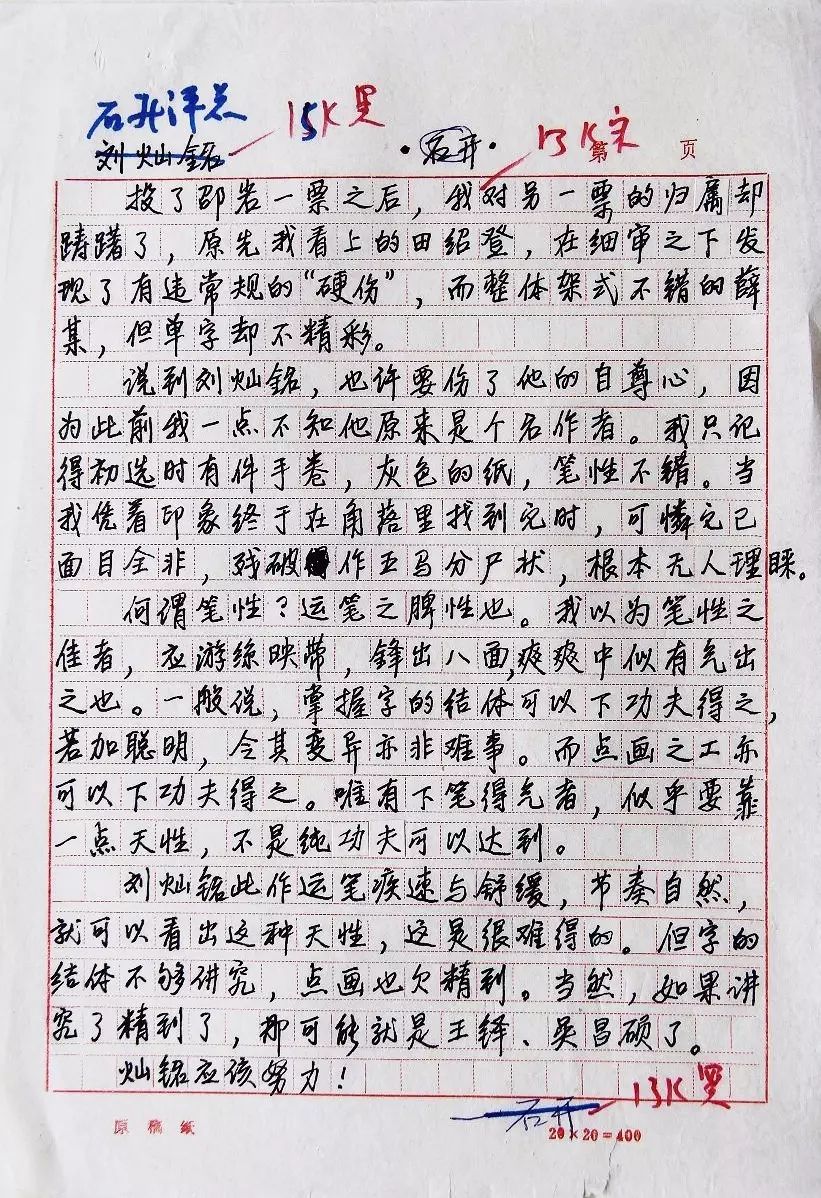 石开评点
15K黑
刘灿铭
·石开·
13K宋
第 页
投了邵岩一票之后，我对另一票的归属却
踌躇了，原先我看上的田绍登，在细审之下发
现了有违常规的“硬伤”，而整体架式不错的薛
某，但单字却不精彩。
说到刘灿铭，也许要伤了他的自尊心，因
为此前我一点不知他原来是个名作者。我只记
得初选时有件手卷，灰色的纸，笔性不错。当
我凭着印象终于在角落里找到它时，可怜它已
面目全非，残破作五马分尸状，根本无人理睬。
何谓笔性？运笔之脾性也。我以为笔性之
佳者，应游丝映带，锋出八面，爽爽中似有气出
之也。一般说，掌握字的结体可以下功夫得之，
若加聪明，令其变异亦非难事。而点画之工亦
可以下功夫得之。唯有下笔得气者，似乎要靠
一点天性，不是纯功夫可以达到。
刘灿铭此作运笔疾速与舒缓，节奏自然，
就可以看出这种天性，这是很难得的。但字的
结体不够讲究，点画也欠精到。当然，如果讲
究了精到了，那可能就是王铎、吴昌硕了。
灿铭应该努力！
石开
13K黑
原稿纸
20×20=400